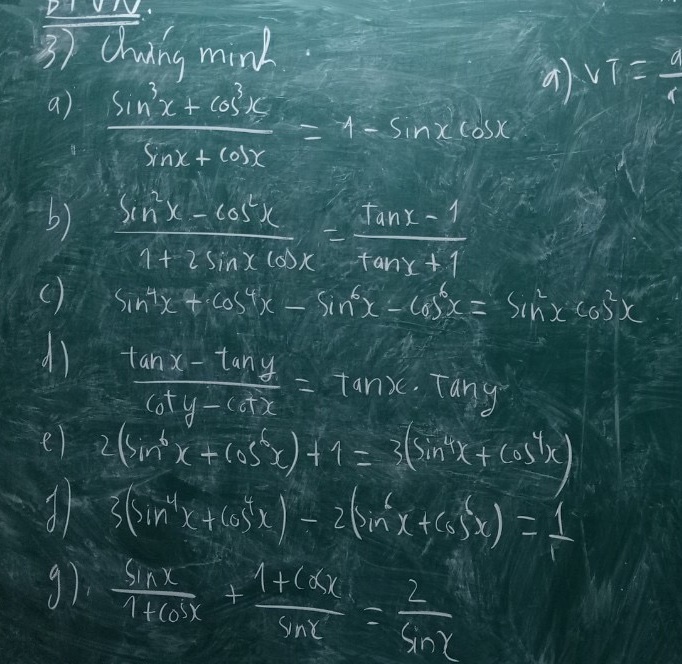 BTVN.
3) Chứng minh.
a) (sin³x + cos³x)/(sinx + cosx) = 1 - sinx cosx
a) VT =
b) (sin²x - cos²x)/(1 + 2 sinx cosx) = (tanx - 1)/(tanx + 1)
c) sin⁴x + cos⁴x - sin⁶x - cos⁶x = sin²x cos²x
d) (tanx - tany)/(coty - cotx) = tanx . tany
e) 2(sin⁶x + cos⁶x) + 1 = 3(sin⁴x + cos⁴x)
f) 3(sin⁴x + cos⁴x) - 2(sin⁶x + cos⁶x) = 1
g) sinx/(1 + cosx) + (1 + cosx)/sinx = 2/sinx